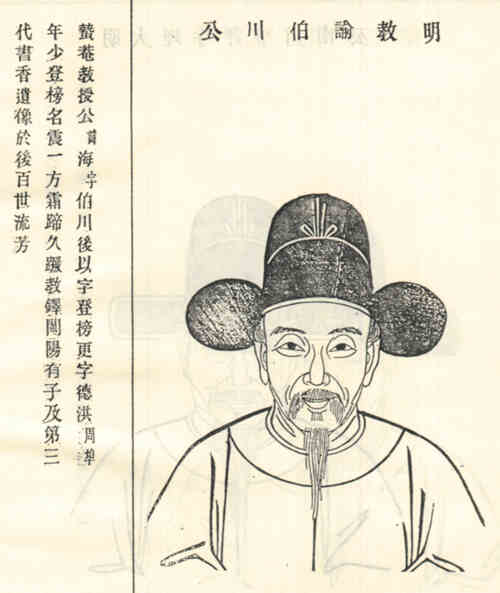 明教諭伯川公
蟄菴教授公海字伯川後以字登榜更字德洪周
年少登榜名震一方霜蹄久蹶教鐸閩陽有子及第三
代書香遺像於後百世流芳